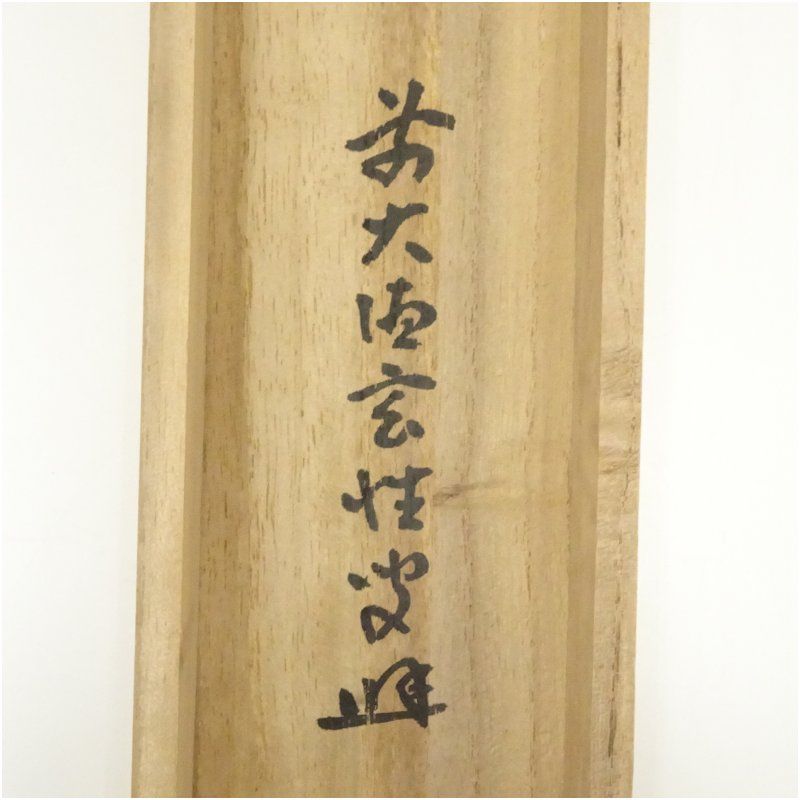 前大徳玄性叟